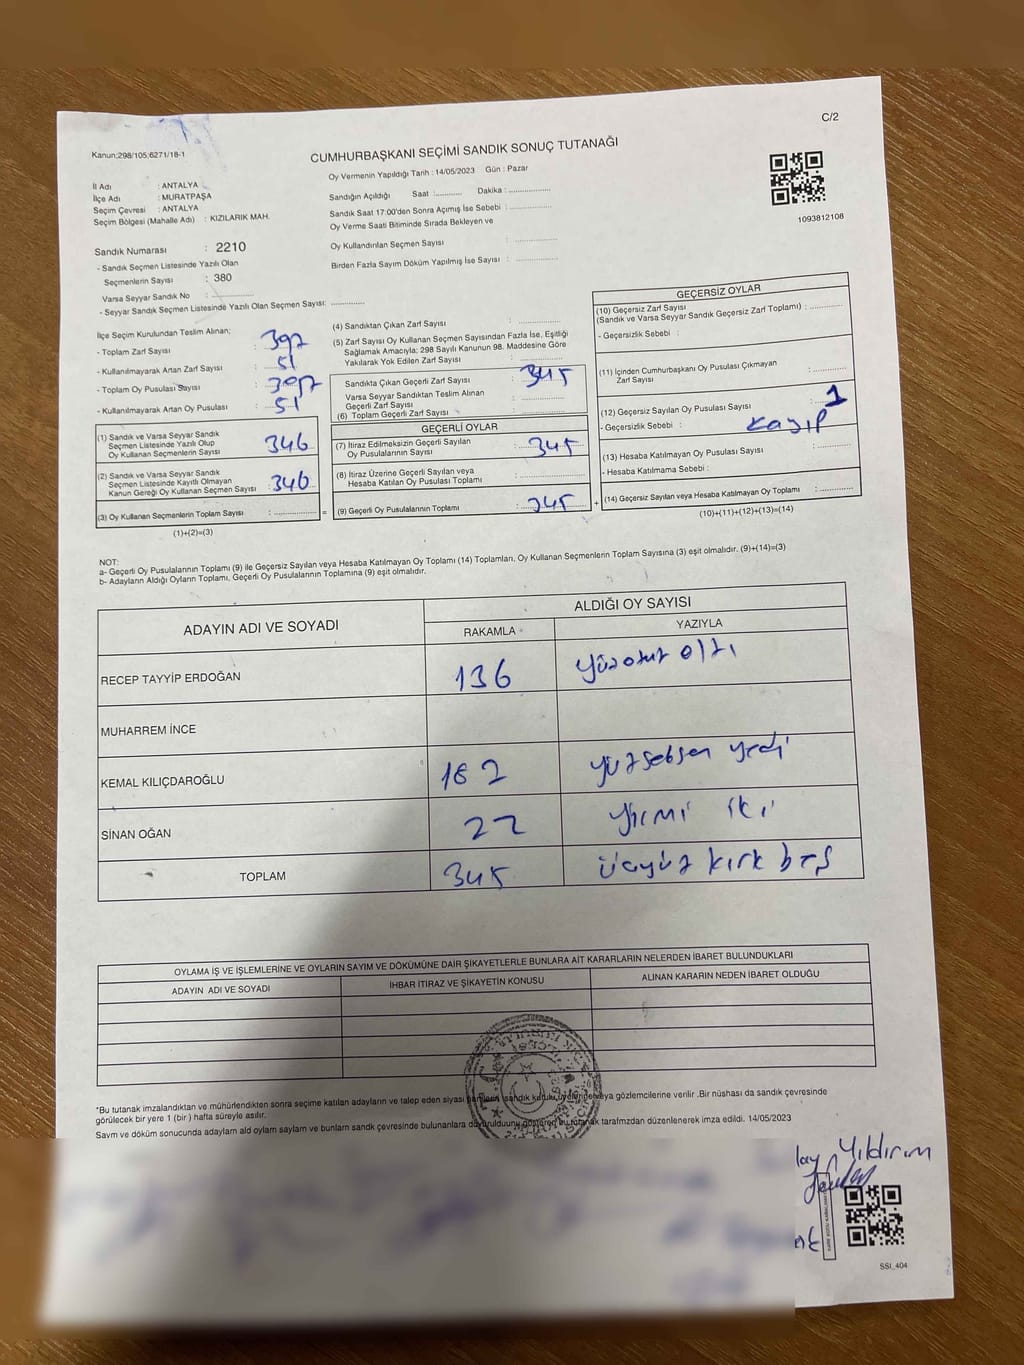 C/2
Kanun:298/105;6271/18-1
CUMHURBAŞKANI SEÇİMİ SANDIK SONUÇ TUTANAĞI
Oy Vermenin Yapıldığı Tarih : 14/05/2023 Gün : Pazar
İl Adı : ANTALYA
İlçe Adı : MURATPAŞA
Seçim Çevresi : ANTALYA
Seçim Bölgesi (Mahalle Adı) : KIZILARIK MAH.
Sandığın Açıldığı Saat :............ Dakika :..................
Sandık Saat 17:00'den Sonra Açımış İse Sebebi :..................
Oy Verme Saati Bitiminde Sırada Bekleyen ve
Oy Kullandırılan Seçmen Sayısı :..................
Birden Fazla Sayım Döküm Yapılmış İse Sayısı :..................
1093812108
Sandık Numarası : 2210
- Sandık Seçmen Listesinde Yazılı Olan
Seçmenlerin Sayısı : 380
Varsa Seyyar Sandık No :..................
- Seyyar Sandık Seçmen Listesinde Yazılı Olan Seçmen Sayısı: ..............
İlçe Seçim Kurulundan Teslim Alınan;
- Toplam Zarf Sayısı : 397
- Kullanılmayarak Artan Zarf Sayısı : 51
- Toplam Oy Pusulası Sayısı : 397
- Kullanılmayarak Artan Oy Pusulası : 51
(1) Sandık ve Varsa Seyyar Sandık
Seçmen Listesinde Yazılı Olup
Oy Kullanan Seçmenlerin Sayısı : 346
(2) Sandık ve Varsa Seyyar Sandık
Seçmen Listesinde Kayıtlı Olmayan
Kanun Gereği Oy Kullanan Seçmen Sayısı : 346
(3) Oy Kullanan Seçmenlerin Toplam Sayısı :..............
(1)+(2)=(3)
(4) Sandıktan Çıkan Zarf Sayısı :..............
(5) Zarf Sayısı Oy Kullanan Seçmen Sayısından Fazla İse, Eşitliği
Sağlamak Amacıyla; 298 Sayılı Kanunun 98. Maddesine Göre
Yakılarak Yok Edilen Zarf Sayısı :..............
Sandıkta Çıkan Geçerli Zarf Sayısı : 345
Varsa Seyyar Sandıktan Teslim Alınan
Geçerli Zarf Sayısı :..............
(6) Toplam Geçerli Zarf Sayısı :..............
GEÇERLİ OYLAR
(7) İtiraz Edilmeksizin Geçerli Sayılan
Oy Pusulalarının Sayısı : 345
(8) İtiraz Üzerine Geçerli Sayılan veya
Hesaba Katılan Oy Pusulası Toplamı :..............
= (9) Geçerli Oy Pusulalarının Toplamı : 345 +
GEÇERSİZ OYLAR
(10) Geçersiz Zarf Sayısı
(Sandık ve Varsa Seyyar Sandık Geçersiz Zarf Toplamı) :..............
- Geçersizlik Sebebi :
(11) İçinden Cumhurbaşkanı Oy Pusulası Çıkmayan
Zarf Sayısı :..............
(12) Geçersiz Sayılan Oy Pusulası Sayısı : 1
- Geçersizlik Sebebi : kayıp
(13) Hesaba Katılmayan Oy Pusulası Sayısı :..............
- Hesaba Katılmama Sebebi :
(14) Geçersiz Sayılan veya Hesaba Katılmayan Oy Toplamı :..............
(10)+(11)+(12)+(13)=(14)
NOT:
a- Geçerli Oy Pusulalarının Toplamı (9) ile Geçersiz Sayılan veya Hesaba Katılmayan Oy Toplamı (14) Toplamları, Oy Kullanan Seçmenlerin Toplam Sayısına (3) eşit olmalıdır. (9)+(14)=(3)
b- Adayların Aldığı Oyların Toplamı, Geçerli Oy Pusulalarının Toplamına (9) eşit olmalıdır.
ADAYIN ADI VE SOYADI ALDIĞI OY SAYISI
RAKAMLA YAZIYLA
RECEP TAYYİP ERDOĞAN 136 yüzotuz altı
MUHARREM İNCE
KEMAL KILIÇDAROĞLU 187 yüzseksen yedi
SİNAN OĞAN 22 yirmi iki
TOPLAM 345 üçyüz kırk beş
OYLAMA İŞ VE İŞLEMLERİNE VE OYLARIN SAYIM VE DÖKÜMÜNE DAİR ŞİKAYETLERLE BUNLARA AİT KARARLARIN NELERDEN İBARET BULUNDUKLARI
ADAYIN ADI VE SOYADI İHBAR İTİRAZ VE ŞİKAYETİN KONUSU ALINAN KARARIN NEDEN İBARET OLDUĞU
*Bu tutanak imzalandıktan ve mühürlendikten sonra seçime katılan adayların ve talep eden siyasi partilerin sandık kurulu üyelerine veya gözlemcilerine verilir .Bir nüshası da sandık çevresinde
görülecek bir yere 1 (bir ) hafta süreyle asılır.
Sayım ve döküm sonucunda
tarafımızdan düzenlenerek imza edildi. 14/05/2023
Yıldırım
SSI_404